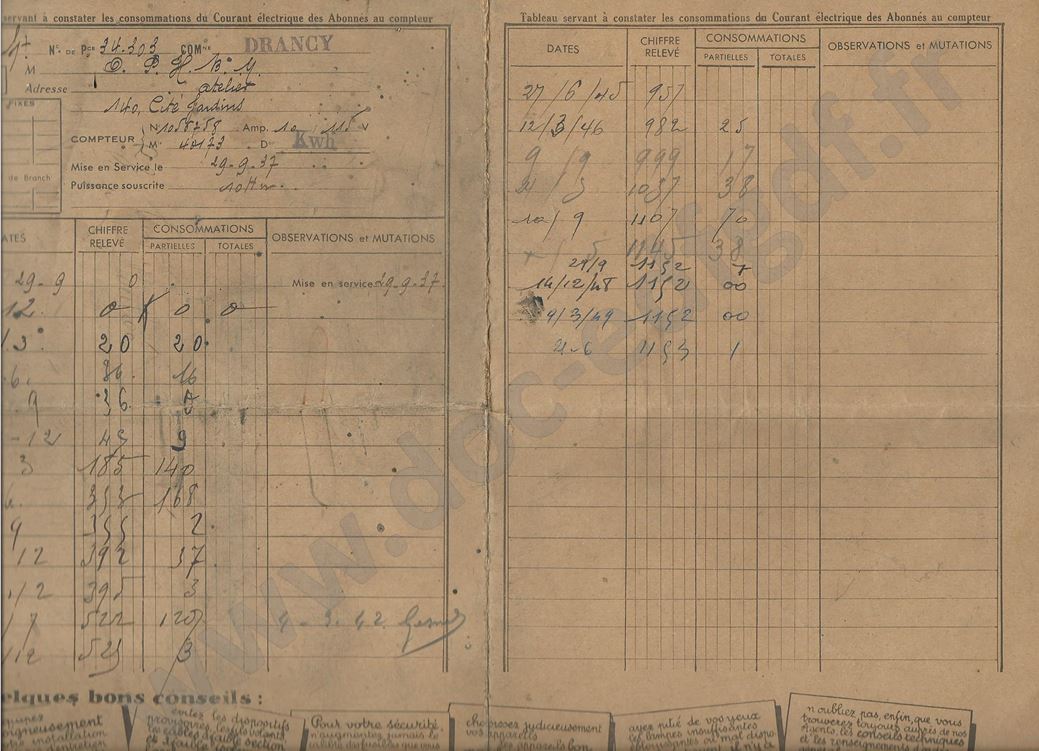 servant à constater les consommations du Courant électrique des Abonnés au compteur
N° DE Pce 34.303 COMne DRANCY
M O. P. H. B. M.
Adresse atelier
140, Cité Jardins
FIXES
COMPTEUR N° 1058758 Amp. 10 115 V
Mle 40173 D Kwh
Mise en Service le 29-9-37
Puissance souscrite 10
de Branch
ATES CHIFFRE RELEVÉ CONSOMMATIONS PARTIELLES TOTALES OBSERVATIONS et MUTATIONS
29-9 0 Mise en service 29-9-37
12. 0 0 0
.3 20 20
6. 36 16
9 36
-12 45 9
3 185 140
353 168
9 355 2
12 392 37
/2 395 3
/7 522 120 4-3.42
/12 525 3
elques bons conseils :
Tableau servant à constater les consommations du Courant électrique des Abonnés au compteur
DATES CHIFFRE RELEVÉ CONSOMMATIONS PARTIELLES TOTALES OBSERVATIONS et MUTATIONS
27/6/45 957
12/3/46 982 25
9/9 999 17
3 1037 38
10/9 1107 70
5 1145 38
29/9 1152 7
14/12/48 1152 00
9/3/49 1152 00
21-6 1153 1
oigneusement
installation
évitez les dispositifs
provisoires, les fils volants
les câbles à faible section
Pour votre sécurité,
n'augmentez jamais le
choisissez judicieusement
vos appareils
ayez pitié de vos yeux
lampes insuffisantes
n'oubliez pas, enfin, que vous
trouverez toujours auprès de nos
Agents, les conseils techniques
et les renseignements
www.doc-edfgdf.fr